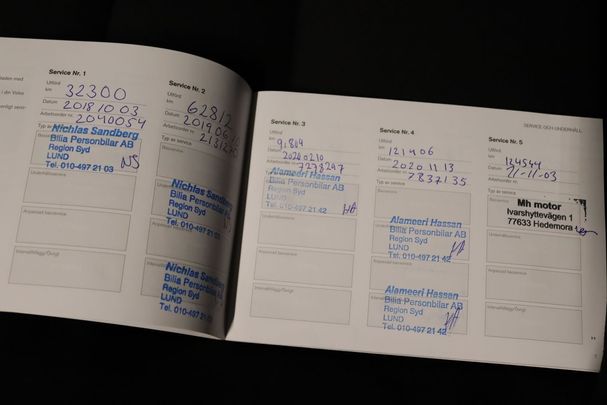 SERVICE OCH UNDERHÅLL
Service Nr. 1
Utförd
km 32300
Datum 20181003
Arbetsorder nr. 2040054
Typ av service
Nichlas Sandberg
Bilia Personbilar AB
Region Syd
LUND
Tel. 010-497 21 03
NS
Underhållsservice
Anpassad basservice
Intervalltillägg/Övrigt
Service Nr. 2
Utförd
km
Datum
Arbetsorder nr.
Typ av service
Basservice
Nichlas Sandberg
Bilia Personbilar AB
Region Syd
LUND
Tel. 010-497
Anpassad basservice
Nichlas Sandberg
Bilia Personbilar AB
Region Syd
LUND
Tel. 010-497 21
Service Nr. 3
Utförd
km
Datum 20200210
Arbetsorder nr. 7278247
Typ av service
Alameeri Hassan
Bilia Personbilar AB
Region Syd
LUND
Tel. 010-497 21 42
Anpassad basservice
Intervalltillägg/Övrigt
Service Nr. 4
Utförd
km 121406
Datum 20201113
Arbetsorder nr. 7837135
Typ av service
Basservice
Alameeri Hassan
Bilia Personbilar AB
Region Syd
LUND
Tel. 010-497 21 42
Alameeri Hassan
Bilia Personbilar AB
Region Syd
LUND
Tel. 010-497 21 42
Service Nr. 5
Utförd
km 124544
Datum 21-11-03
Arbetsorder nr.
Typ av service
Mh motor
Ivarshyttevägen 1
77633 Hedemora
Underhållsservice
Anpassad basservice
Intervalltillägg/Övrigt